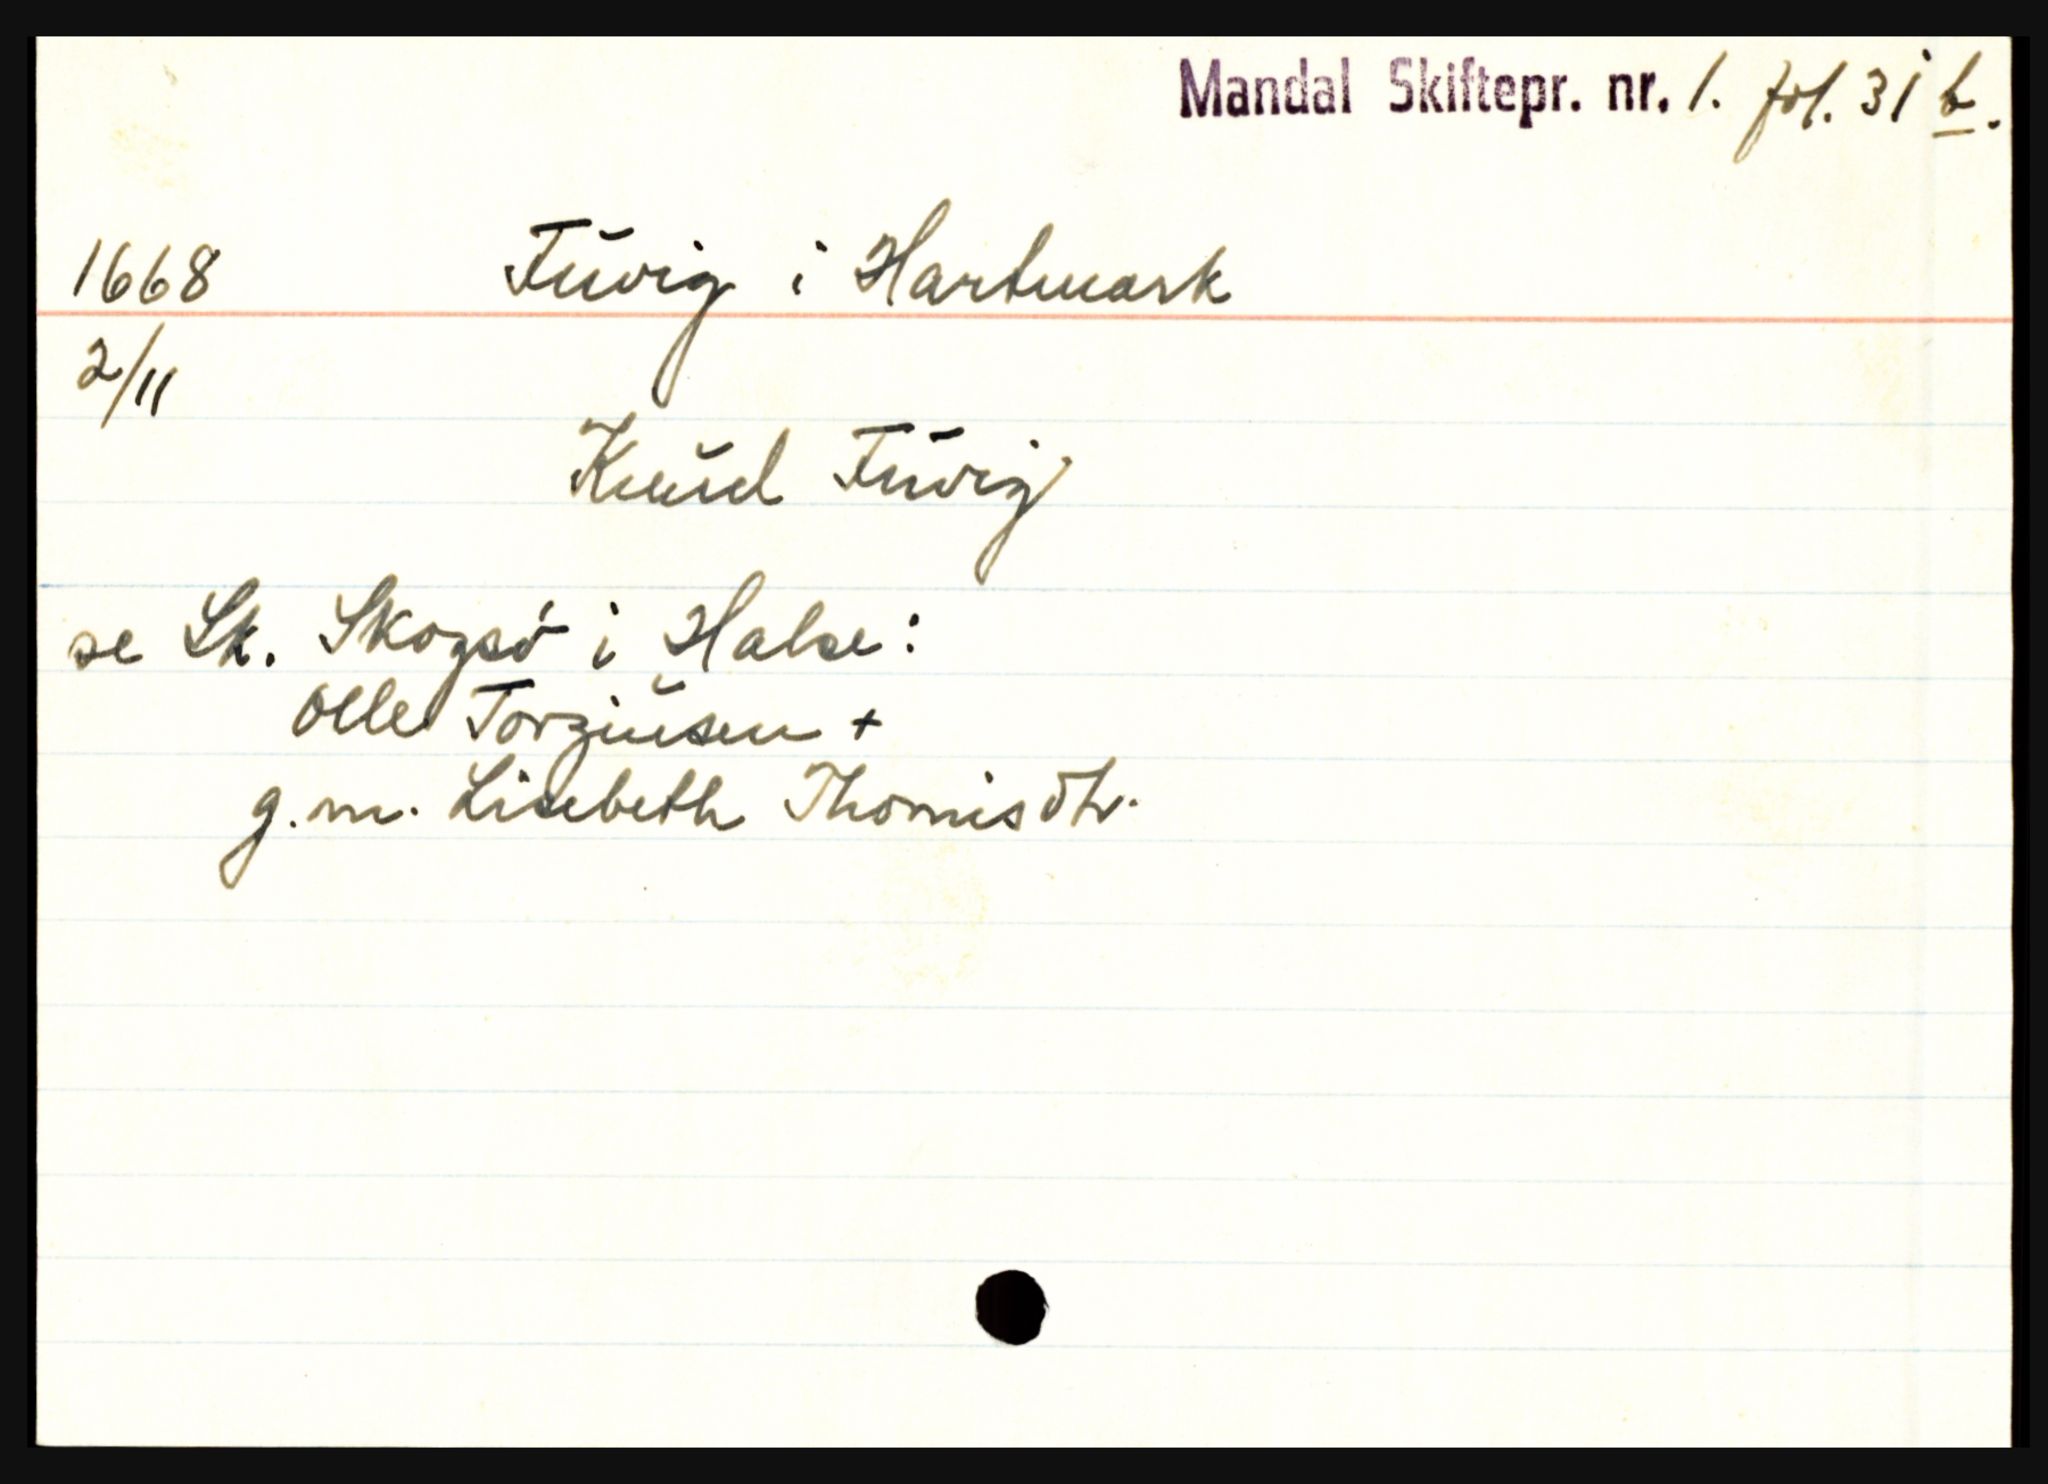 Mandal Skiftepr. nr. 1. fol. 31 b.
1668 Tuvig i Hartmark
2/11
Knud Tuvig
se Sk. Skogsø i Halse:
Olle Torgiusen +
g.m. Lisebeth Thomisdtr.